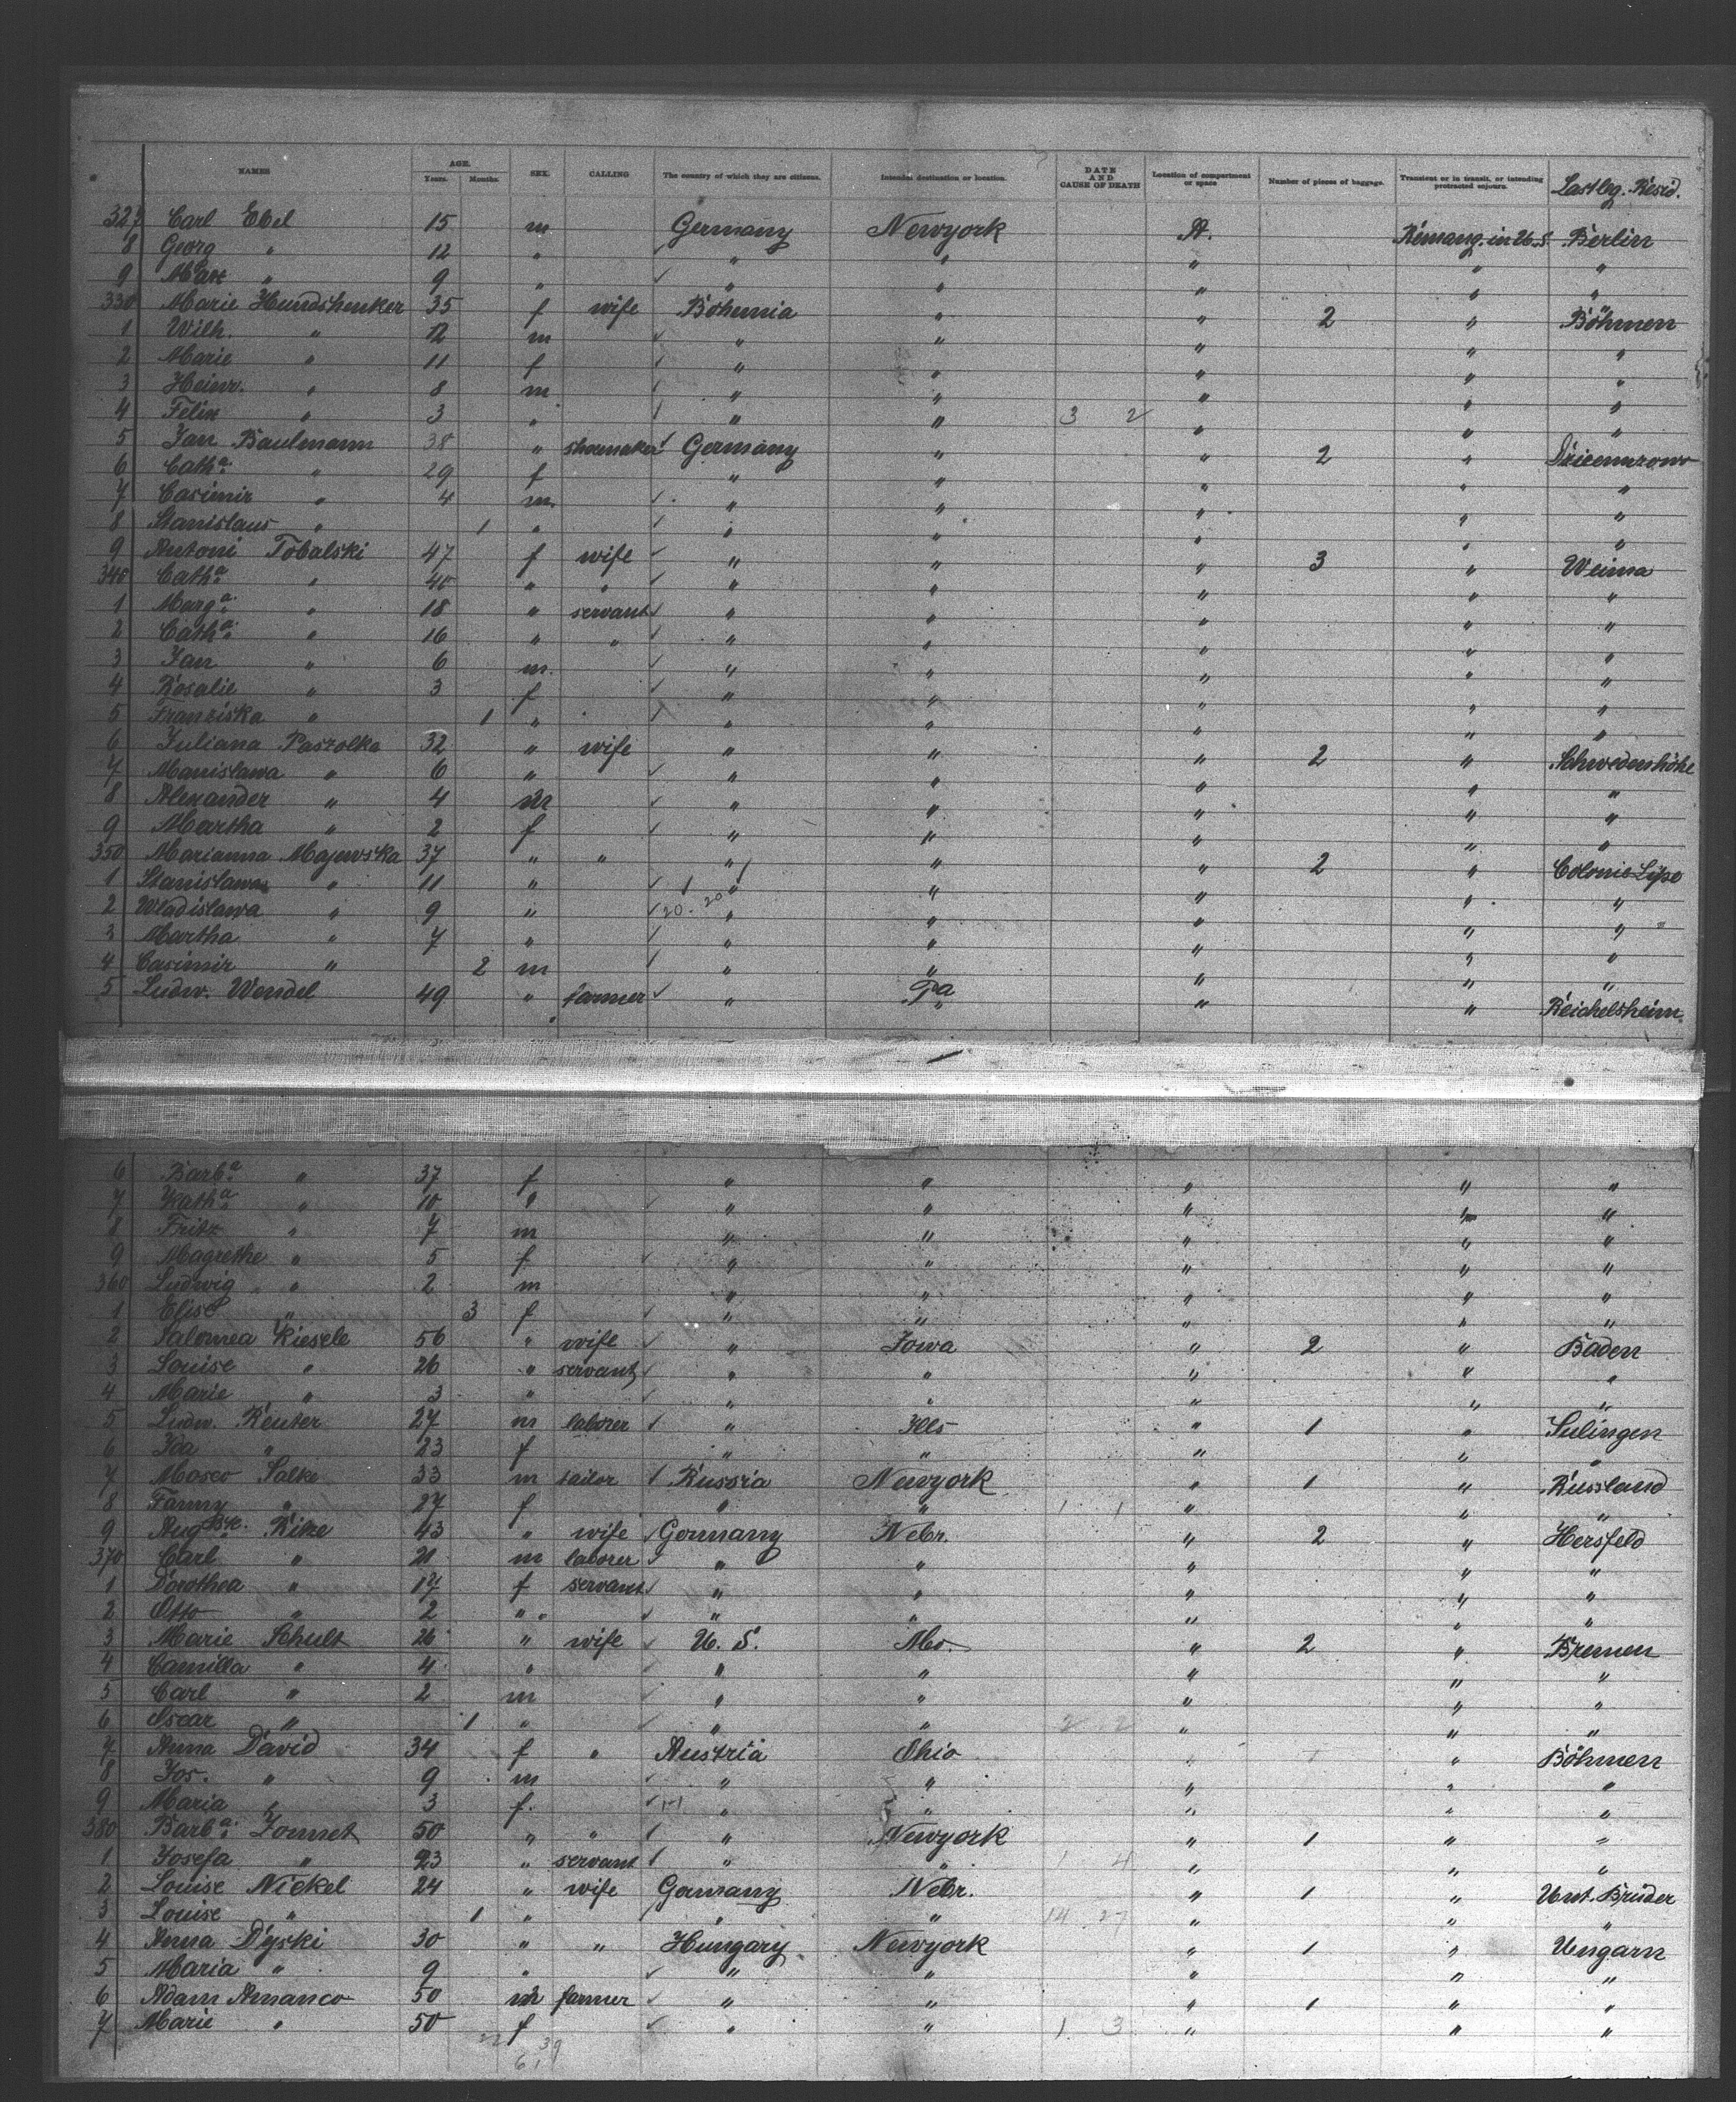 NAMES AGE. Years. Months. SEX. CALLING The country of which they are citizens. Intended destination or location. DATE AND CAUSE OF DEATH Location of compartment or space Number of pieces of baggage. Transient or in transit, or intending protracted sojourn. Last leg. Resid.
327 Carl Ebel 15 m Germany Newyork St. Remang. in U.S. Berlin
8 Georg " 12 " " " " " "
9 Max " 9 " " " " " "
330 Marie Hundshenker 35 f wife Bohemia " " 2 " Böhmen
1 Wilh. " 12 m " " " " "
2 Marie " 11 f " " " " "
3 Heinr. " 8 m " " " " "
4 Felix " 3 " " " 3 2 " " "
5 Jan Baulmann 38 " shoemaker Germany " " 2 "
6 Catha " 29 f " " " " "
7 Casimir " 4 m. " " " " "
8 Stanislaus " 1 " " " " " "
9 Antoni Tobalski 47 f wife " " " 3 " Weima
340 Catha " 40 " " " " " " "
1 Marga " 18 " servant " " " " "
2 Catha " 16 " " " " " " "
3 Jan " 6 m. " " " " "
4 Rosalie " 3 f " " " " "
5 Franziska " 1 " " " " " "
6 Juliana Paszolka 32 " wife " " " 2 " Schwedenhöhe
7 Manislawa " 6 " " " " " "
8 Alexander " 4 m " " " " "
9 Martha " 2 f " " " " "
350 Marianna Majewska 37 " " " " " 2 " Colonie Lipo
1 Stanislawa " 11 " " " " " "
2 Wladislawa " 9 " 20. 20 " " " " "
3 Martha " 7 " " " " " "
4 Casimir " 2 m " " " " "
5 Ludw. Wendel 49 " farmer " Pa " " Reichelsheim.
6 Barba " 37 f " " " " "
7 Katha " 10 " " " " " "
8 Fritz " 7 m " " " " "
9 Magrethe " 5 f " " " " "
360 Ludwig " 2 m " " " " "
1 Elise " 3 f " " " " "
2 Salomea Kiesele 56 " wife " Iowa " 2 " Baden
3 Louise " 26 " servant " " " " "
4 Marie " 3 " " " " " "
5 Ludw. Reuter 27 m laborer " Ills " 1 " Sulingen
6 Ida " 23 f " " " " "
7 Mosco Salke 33 m tailor Russia Newyork " 1 " Russland
8 Fanny " 27 f " " 1 1 " " "
9 Augste. Rike 43 " wife Germany Nebr. " 2 " Hersfeld
370 Carl " 21 m laborer " " " " "
1 Dorothea " 17 f servant " " " " "
2 Otto " 2 " " " " " "
3 Marie Schult 26 " wife U. S. Mo. " 2 " Bremen
4 Camilla " 4 " " " " " "
5 Carl " 2 m " " " " "
6 Oscar " 1 " " " 2 2 " " "
7 Anna David 34 f " Austria Ohio " 1 " Böhmen
8 Jos. " 9 m " " " " "
9 Maria " 3 f. " " " " "
380 Barba Zonnet 50 " " " Newyork " 1 " "
1 Josefa " 23 " servant " " 1 4 " " "
2 Louise Nickel 24 " wife Germany Nebr. " 1 " Unt. Brüder
3 Louise " 1 " " " 14 27 " " "
4 Anna Dyski 30 " " Hungary Newyork " 1 " Ungarn
5 Maria " 9 " " " " " "
6 Adam Amanco 50 m farmer " " " 1 " "
7 Marie " 50 f " " 1 3 " " "